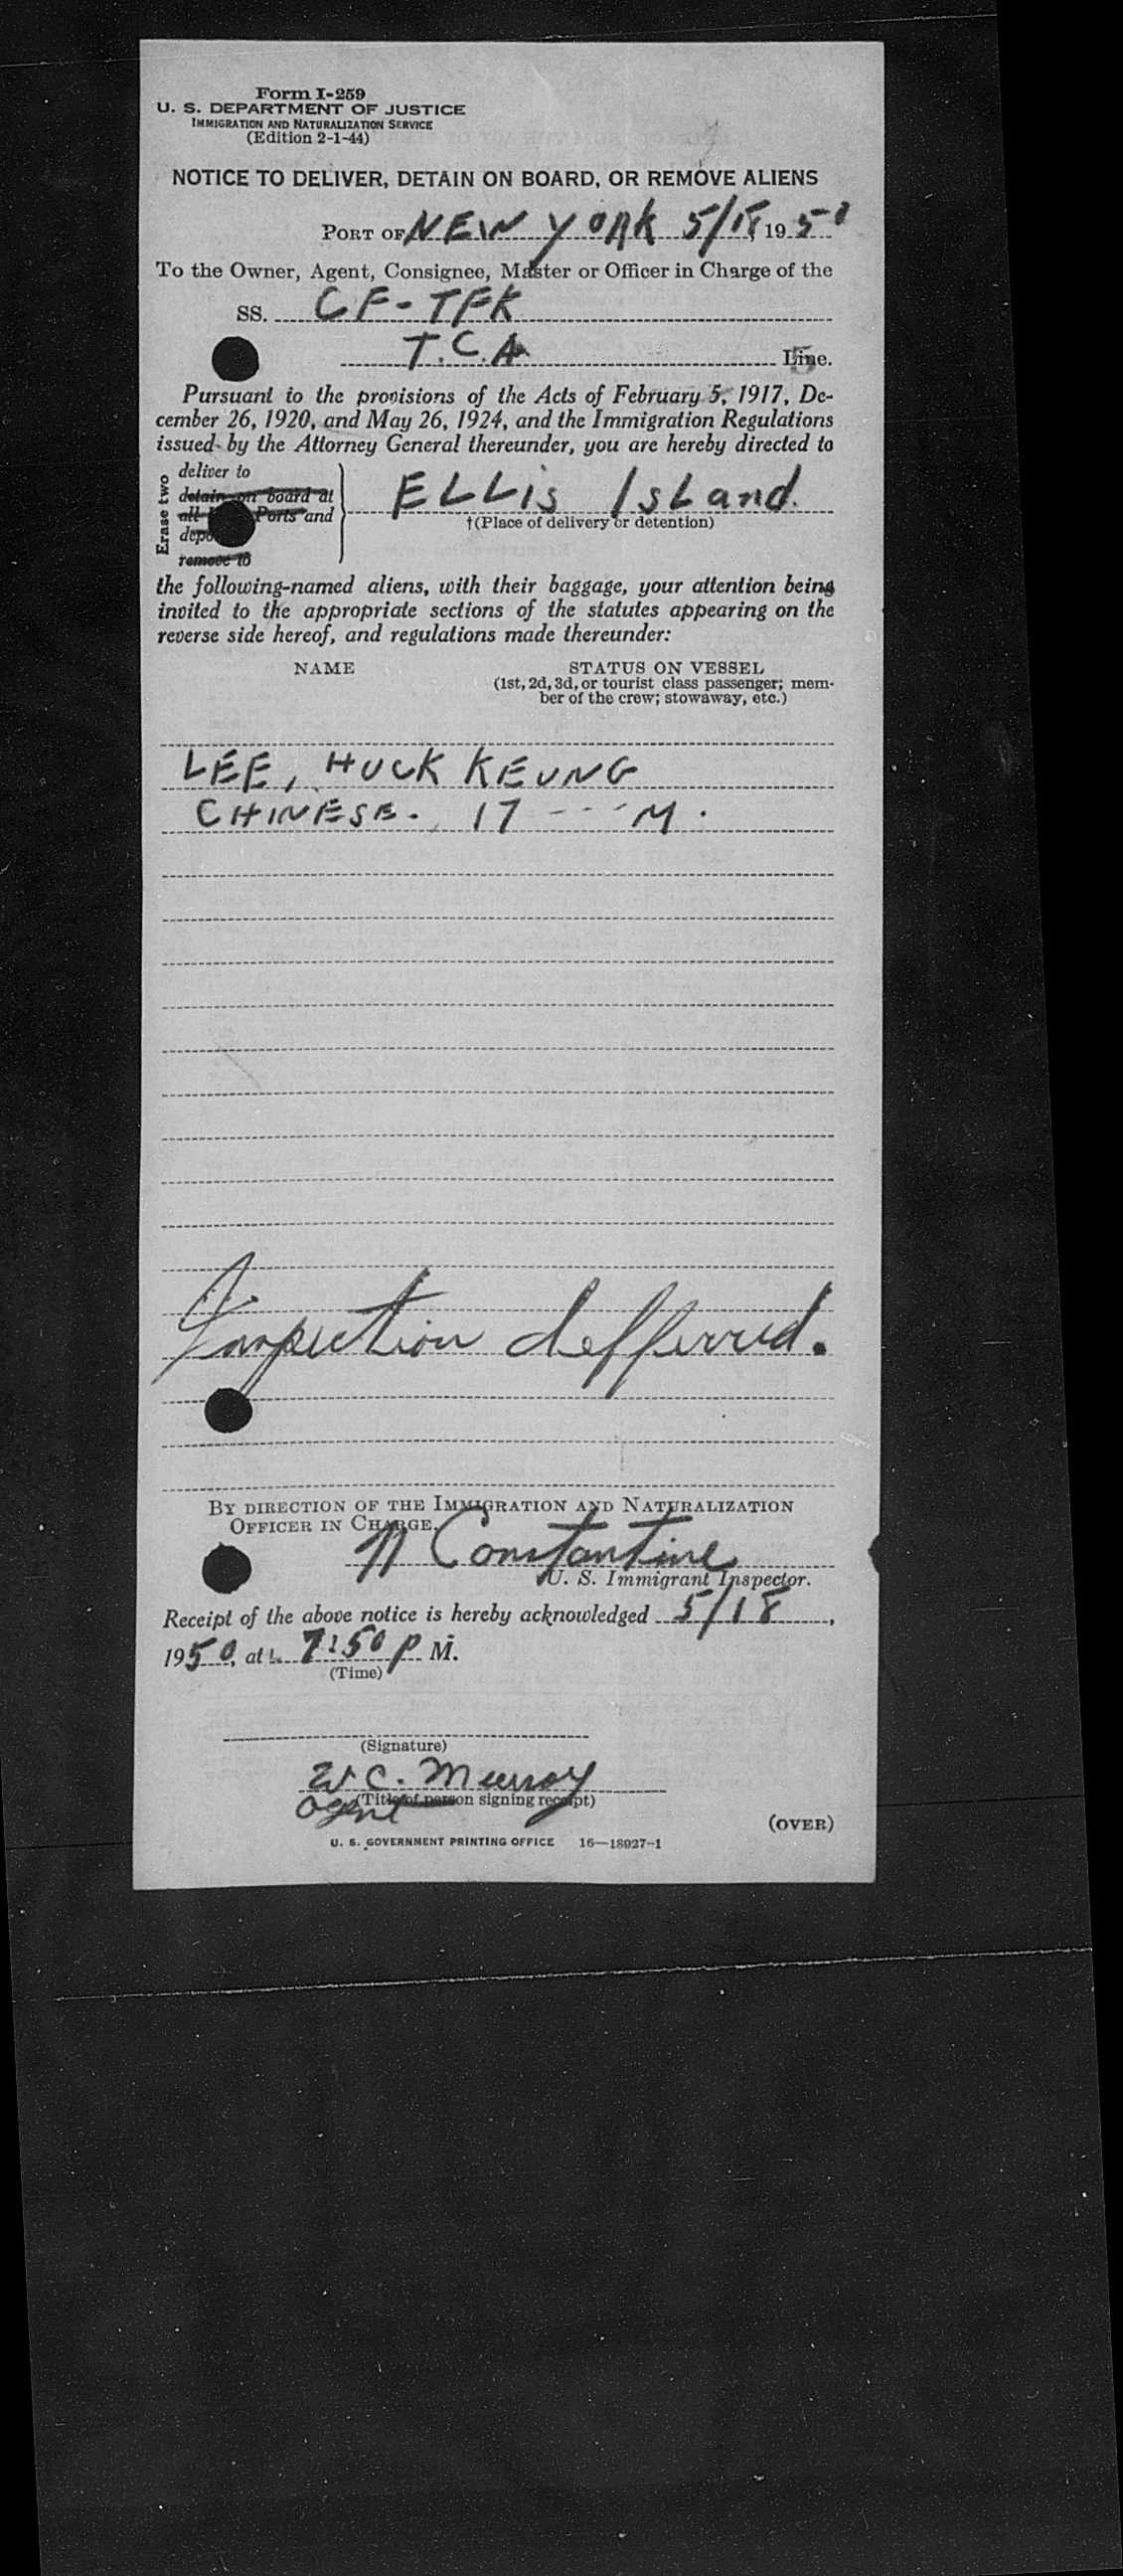 Form I-259
U. S. DEPARTMENT OF JUSTICE
IMMIGRATION AND NATURALIZATION SERVICE
(Edition 2-1-44)
NOTICE TO DELIVER, DETAIN ON BOARD, OR REMOVE ALIENS
PORT OF NEW YORK 5/18, 1950
To the Owner, Agent, Consignee, Master or Officer in Charge of the
SS. CF-TFK
T.C.A. Line.
Pursuant to the provisions of the Acts of February 5, 1917, De-
cember 26, 1920, and May 26, 1924, and the Immigration Regulations
issued by the Attorney General thereunder, you are hereby directed to
Erase two
deliver to
detain on board at
all Ports and
remove to
ELLis IsLand.
†(Place of delivery or detention)
the following-named aliens, with their baggage, your attention being
invited to the appropriate sections of the statutes appearing on the
reverse side hereof, and regulations made thereunder:
NAME STATUS ON VESSEL
(1st, 2d, 3d, or tourist class passenger; mem-
ber of the crew; stowaway, etc.)
LEE, HUCK KEUNG
CHINESE. 17 --- M.
Inspection defferred.
BY DIRECTION OF THE IMMIGRATION AND NATURALIZATION
OFFICER IN CHARGE.
N Constantine
U. S. Immigrant Inspector.
Receipt of the above notice is hereby acknowledged 5/18,
1950, at 7:50 P M.
(Time)
(Signature)
W C. Murray
(Title of person signing receipt)
agent
(OVER)
U. S. GOVERNMENT PRINTING OFFICE 16—18027-1